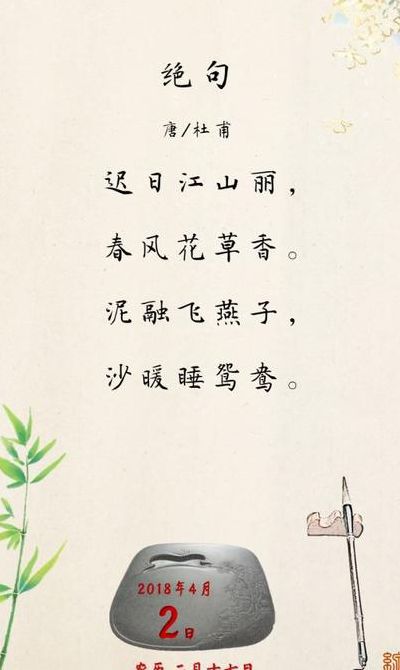 绝句
唐/杜甫
迟日江山丽，
春风花草香。
泥融飞燕子，
沙暖睡鸳鸯。
2018年4月
2日
农历二月十七日